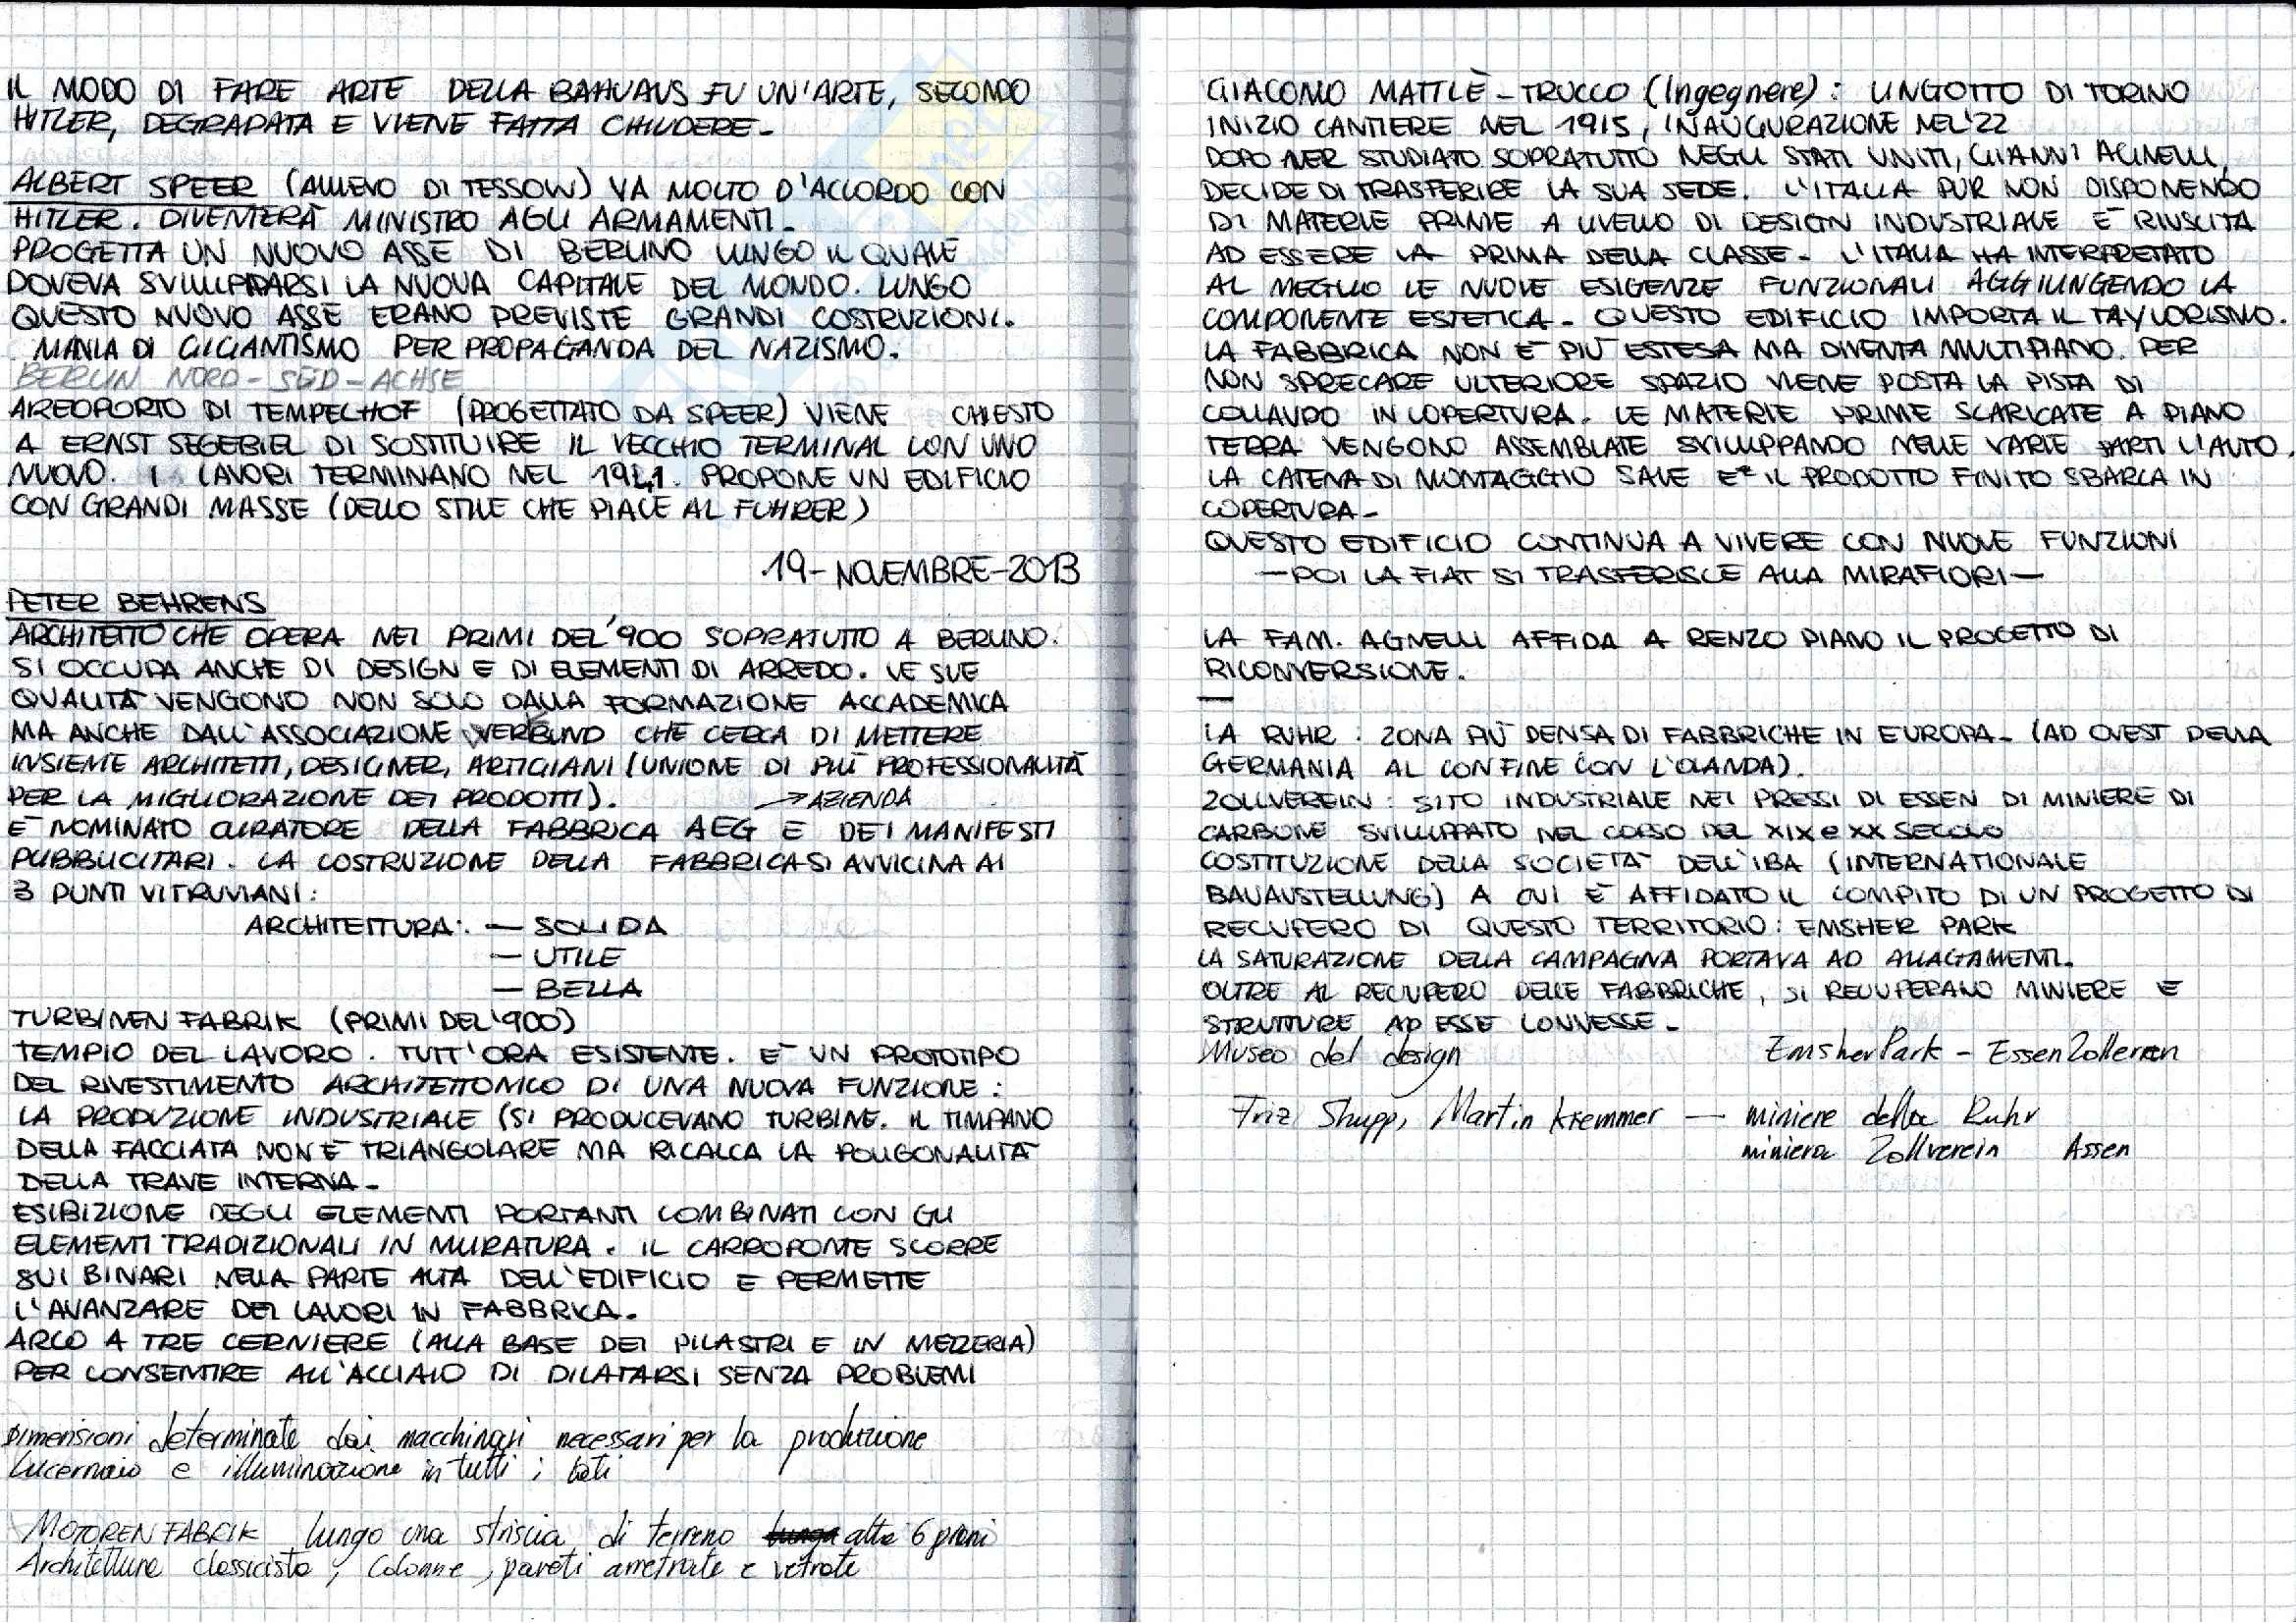 IL MODO DI FARE ARTE DELLA BAHUAUS FU UN'ARTE, SECONDO
HITLER, DEGRADATA E VIENE FATTA CHIUDERE-
ALBERT SPEER (ALLIEVO DI TESSOW) VA MOLTO D'ACCORDO CON
HITLER. DIVENTERÀ MINISTRO AGLI ARMAMENTI-
PROGETTA UN NUOVO ASSE DI BERLINO LUNGO IL QUALE
DOVEVA SVILUPPARSI LA NUOVA CAPITALE DEL MONDO. LUNGO
QUESTO NUOVO ASSE ERANO PREVISTE GRANDI COSTRUZIONI.
MANIA DI GIGANTISMO PER PROPAGANDA DEL NAZISMO.
BERLIN NORD-SÜD-ACHSE
AREOPORTO DI TEMPELHOF (PROGETTATO DA SPEER) VIENE CHIESTO
A ERNST SEGEBIEL DI SOSTITUIRE IL VECCHIO TERMINAL CON UNO
NUOVO. I LAVORI TERMINANO NEL 1941. PROPONE UN EDIFICIO
CON GRANDI MASSE (DELLO STILE CHE PIACE AL FUHRER)
19-NOVEMBRE-2013
PETER BEHRENS
ARCHITETTO CHE OPERA NEI PRIMI DEL '900 SOPRATUTTO A BERLINO.
SI OCCUPA ANCHE DI DESIGN E DI ELEMENTI DI ARREDO. LE SUE
QUALITÀ VENGONO NON SOLO DALLA FORMAZIONE ACCADEMICA
MA ANCHE DALL'ASSOCIAZIONE CHE CERCA DI METTERE
INSIEME ARCHITETTI, DESIGNER, ARTIGIANI (UNIONE DI PIÙ PROFESSIONALITÀ
PER LA MIGLIORAZIONE DEI PRODOTTI). → AZIENDA
È NOMINATO CURATORE DELLA FABBRICA AEG E DEI MANIFESTI
PUBBLICITARI. LA COSTRUZIONE DELLA FABBRICA SI AVVICINA AI
3 PUNTI VITRUVIANI:
ARCHITETTURA: - SOLIDA
- UTILE
- BELLA
TURBINEN FABRIK (PRIMI DEL '900)
TEMPIO DEL LAVORO. TUTT'ORA ESISTENTE. È UN PROTOTIPO
DEL RIVESTIMENTO ARCHITETTONICO DI UNA NUOVA FUNZIONE:
LA PRODUZIONE INDUSTRIALE (SI PRODUCEVANO TURBINE. IL TIMPANO
DELLA FACCIATA NON È TRIANGOLARE MA RICALCA LA POLIGONALITÀ
DELLA TRAVE INTERNA-
ESIBIZIONE DEGLI ELEMENTI PORTANTI COMBINATI CON GLI
ELEMENTI TRADIZIONALI IN MURATURA. IL CARROPONTE SCORRE
SUI BINARI NELLA PARTE ALTA DELL'EDIFICIO E PERMETTE
L'AVANZARE DEI LAVORI IN FABBRICA.
ARCO A TRE CERNIERE (ALLA BASE DEI PILASTRI E IN MEZZERIA)
PER CONSENTIRE ALL'ACCIAIO DI DILATARSI SENZA PROBLEMI
Dimensioni determinate dai macchinari necessari per la produzione
Lucernaio e illuminazione in tutti i lati
MOTOREN FABRIK lungo una striscia di terreno alta 6 piani
Architettura classicista, colonne, pareti arretrate e vetrate
GIACOMO MATTLÈ-TRUCCO (Ingegnere): LINGOTTO DI TORINO
INIZIO CANTIERE NEL 1915, INAUGURAZIONE NEL '22
DOPO AVER STUDIATO SOPRATUTTO NEGLI STATI UNITI, GIANNI AGNELLI,
DECIDE DI TRASFERIRE LA SUA SEDE. L'ITALIA PUR NON DISPONENDO
DI MATERIE PRIME A LIVELLO DI DESIGN INDUSTRIALE È RIUSCITA
AD ESSERE LA PRIMA DELLA CLASSE- L'ITALIA HA INTERPRETATO
AL MEGLIO LE NUOVE ESIGENZE FUNZIONALI AGGIUNGENDO LA
COMPONENTE ESTETICA- QUESTO EDIFICIO IMPORTA IL TAYLORISMO.
LA FABBRICA NON È PIÙ ESTESA MA DIVENTA MULTIPIANO. PER
NON SPRECARE ULTERIORE SPAZIO VIENE POSTA LA PISTA DI
COLLAUDO IN COPERTURA. LE MATERIE PRIME SCARICATE A PIANO
TERRA VENGONO ASSEMBLATE SVILUPPANDO NELLE VARIE PARTI L'AUTO.
LA CATENA DI MONTAGGIO SALE E IL PRODOTTO FINITO SBARCA IN
COPERTURA-
QUESTO EDIFICIO CONTINUA A VIVERE CON NUOVE FUNZIONI
-POI LA FIAT SI TRASFERISCE ALLA MIRAFIORI-
LA FAM. AGNELLI AFFIDA A RENZO PIANO IL PROGETTO DI
RICONVERSIONE.
-
LA RUHR: ZONA PIÙ DENSA DI FABBRICHE IN EUROPA- (AD OVEST DELLA
GERMANIA AL CONFINE CON L'OLANDA).
ZOLLVEREIN: SITO INDUSTRIALE NEI PRESSI DI ESSEN DI MINIERE DI
CARBONE SVILUPPATO NEL CORSO DEL XIX e XX SECOLO
COSTITUZIONE DELLA SOCIETÀ DELL'IBA (INTERNATIONALE
BAUAUSTELLUNG) A CUI È AFFIDATO IL COMPITO DI UN PROGETTO DI
RECUPERO DI QUESTO TERRITORIO: EMSHER PARK
LA SATURAZIONE DELLA CAMPAGNA PORTAVA AD ALLAGAMENTI.
OLTRE AL RECUPERO DELLE FABBRICHE, SI RECUPERANO MINIERE E
STRUTTURE AD ESSE CONNESSE-
Museo del design EmsherPark - Essen Zolleren
Friz Shupp, Martin Kremmer - miniere della Ruhr
miniera Zollverein Assen